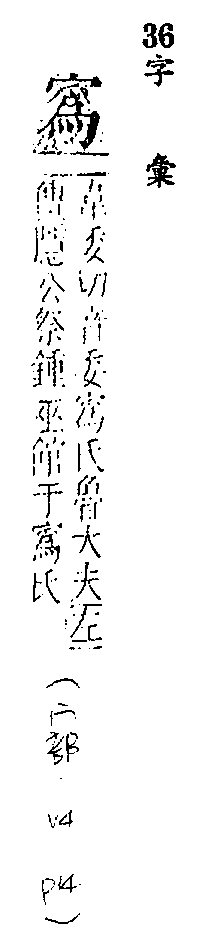 36
字彙
寪
韋委切音委寪氏魯大夫左
傳隱公祭鍾巫館于寪氏
(宀部. V4 P14)